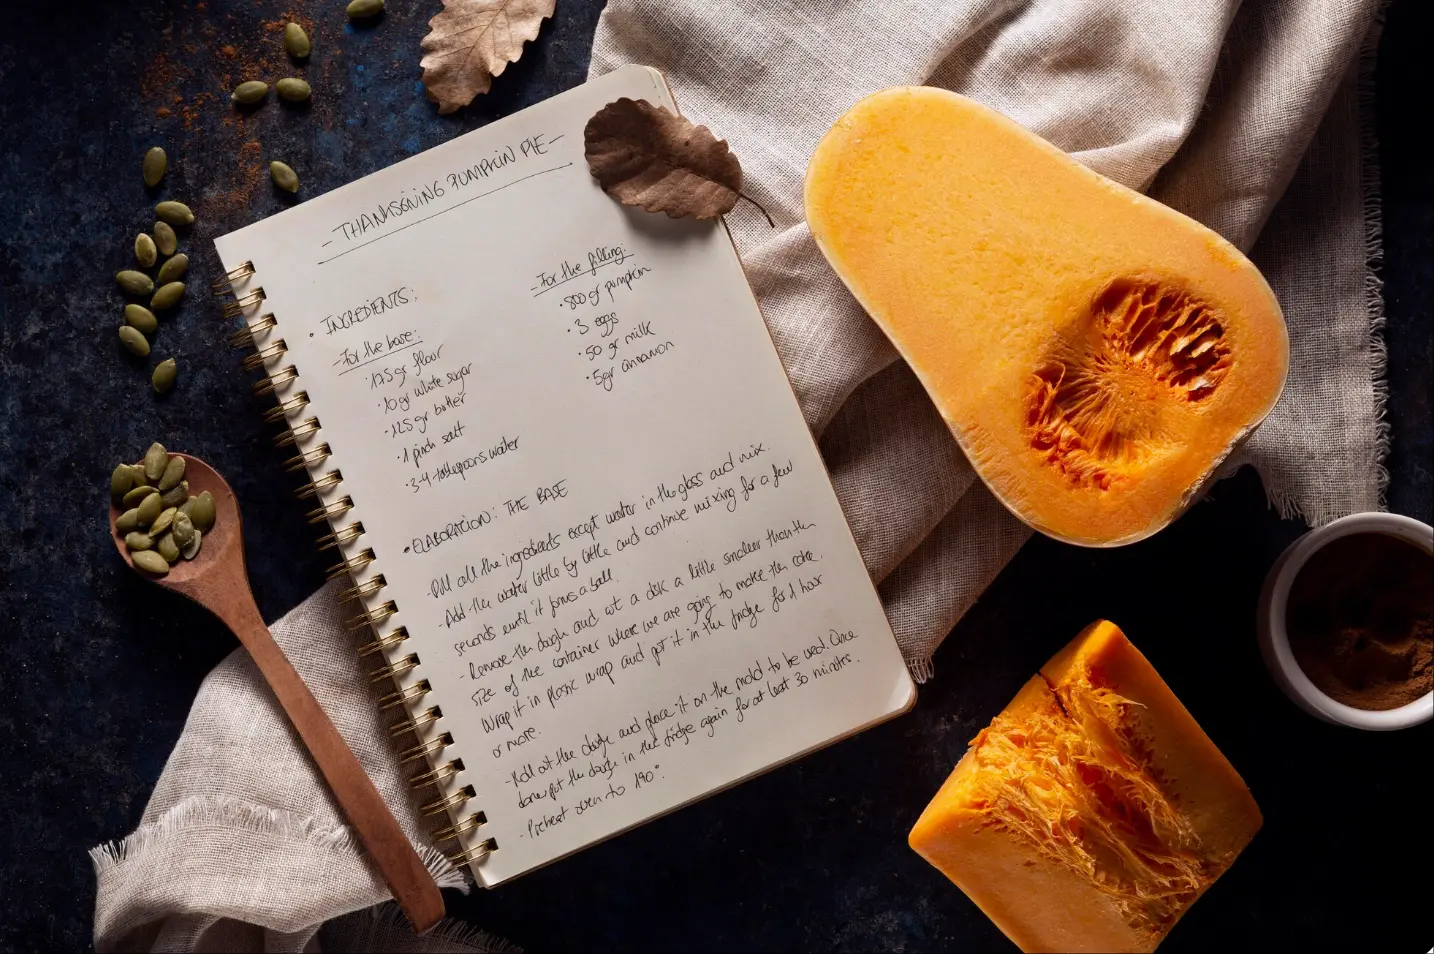 - THANKSGIVING PUMPKIN PIE -
• INGREDIENTS:
- For the base:
• 125 gr flour
• 10 gr white sugar
• 125 gr butter
• 1 pinch salt
• 3-4 tablespoons water
- For the filling:
• 800 gr pumpkin
• 3 eggs
• 50 gr milk
• 5gr cinnamon
• ELABORACION: THE BASE
- Pull all the ingredients except water in the glass and mix.
- Add the water little by little and continue mixing for a few
seconds until it forms a ball.
- Remove the dough and cut a disk a little smaller than the
size of the container where we are going to make the cake.
Wrap it in plastic wrap and put it in the fridge for 1 hour
or more.
- Roll out the dough and place it on the mold to be used. Once
done put the dough in the fridge again for at least 30 minutes.
- Preheat oven to 190°.